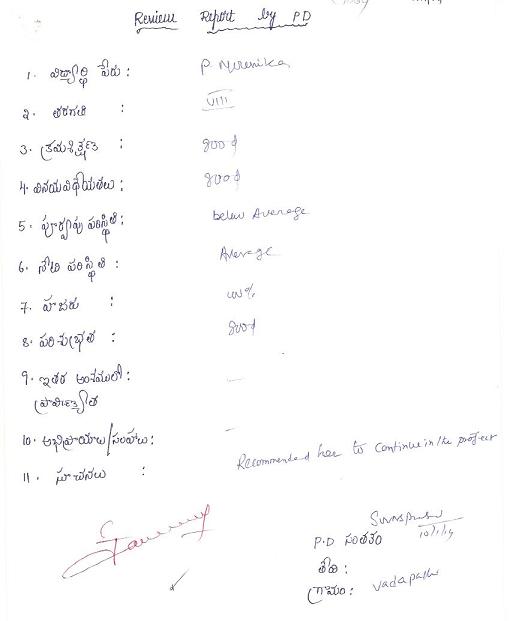 Review Report by PD
1. విద్యార్థి పేరు: P Nirenika
2. తరగతి : VIII
3. క్రమశిక్షణ : good
4. వినయవిధేయతలు: good
5. పూర్వాపు పరిస్థితి: below Average
6. నేటి పరిస్థితి : Average
7. హాజరు : 100%
8. పరిశుభ్రత : good
9. ఇతర అంశములలో: —
ప్రావీణ్యత
10. అభిప్రాయాలు/సలహాలు: —
11. సూచనలు : Recommended her to continue in the project
P.D సంతకం 10/1/19
తేది:
గ్రామం: